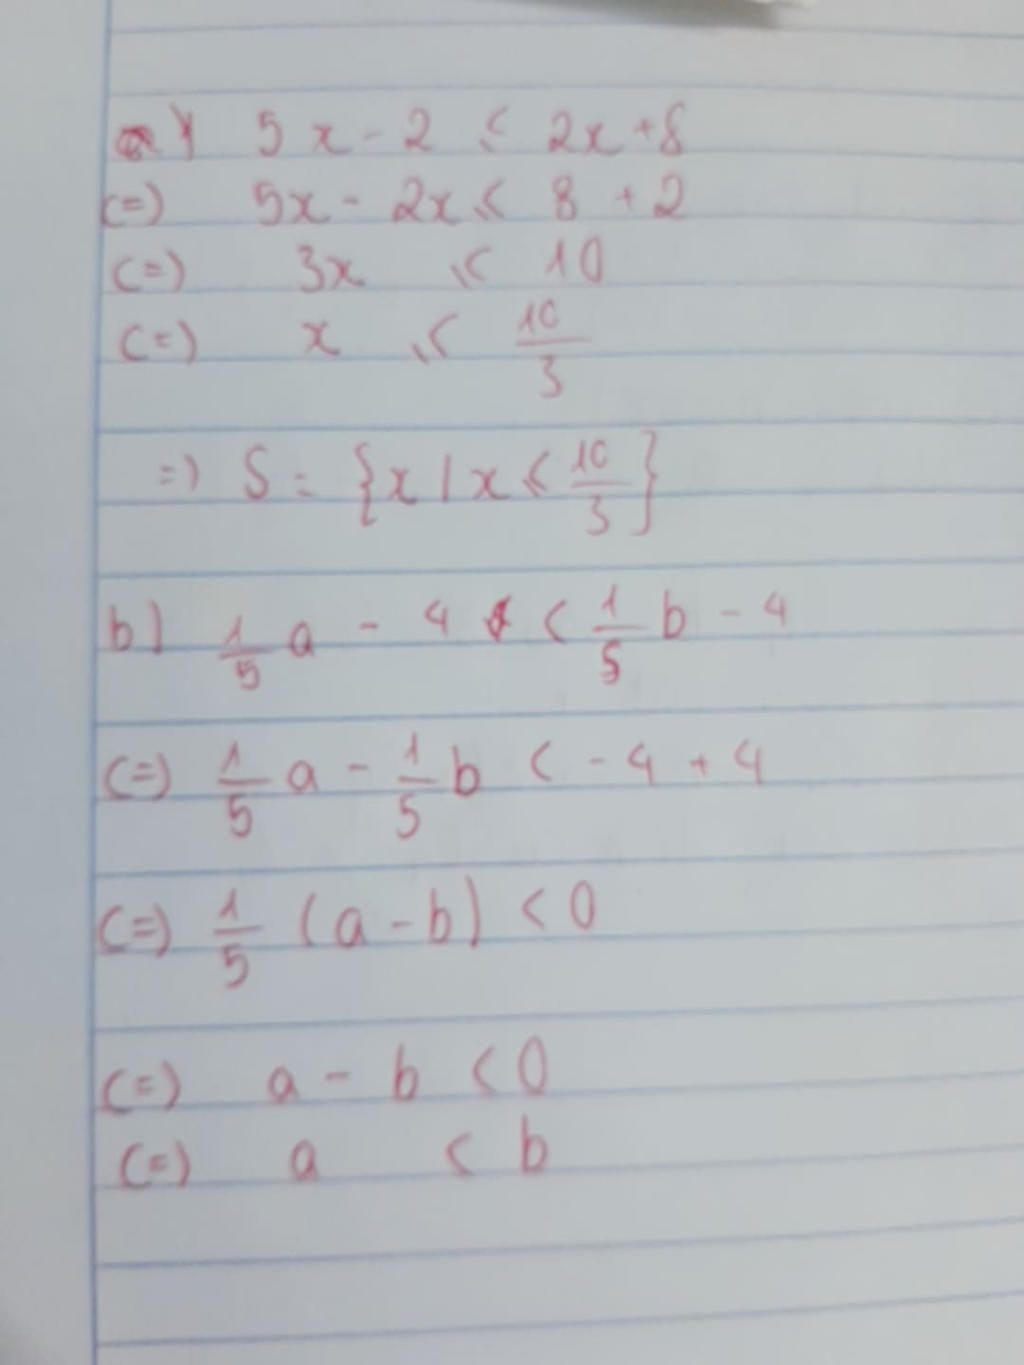 a) 5x - 2 ⩽ 2x + 8
(=) 5x - 2x ⩽ 8 + 2
(=) 3x ⩽ 10
(=) x ⩽ 10/3
=) S = {x | x ⩽ 10/3}
b) 1/5 a - 4 < 1/5 b - 4
(=) 1/5 a - 1/5 b < - 4 + 4
(=) 1/5 (a - b) < 0
(=) a - b < 0
(=) a < b